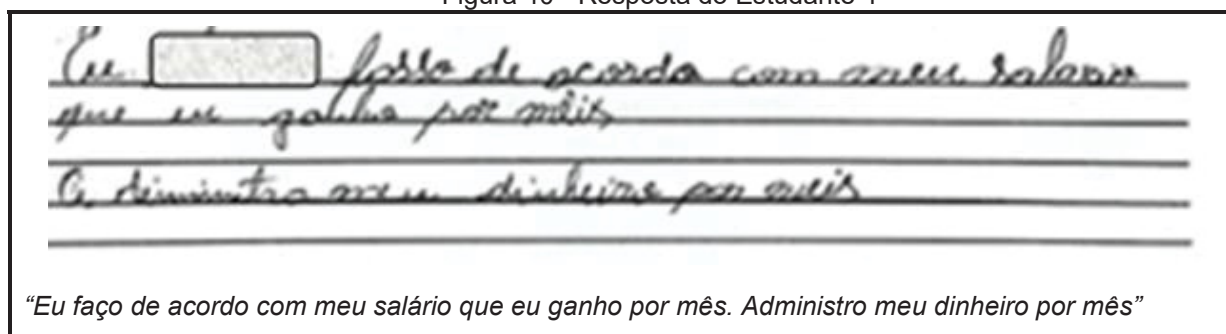 Eu fasso de acordo com meu salario
que eu ganho por mêis
A diminstro meu dinheiro por meis
“Eu faço de acordo com meu salário que eu ganho por mês. Administro meu dinheiro por mês”